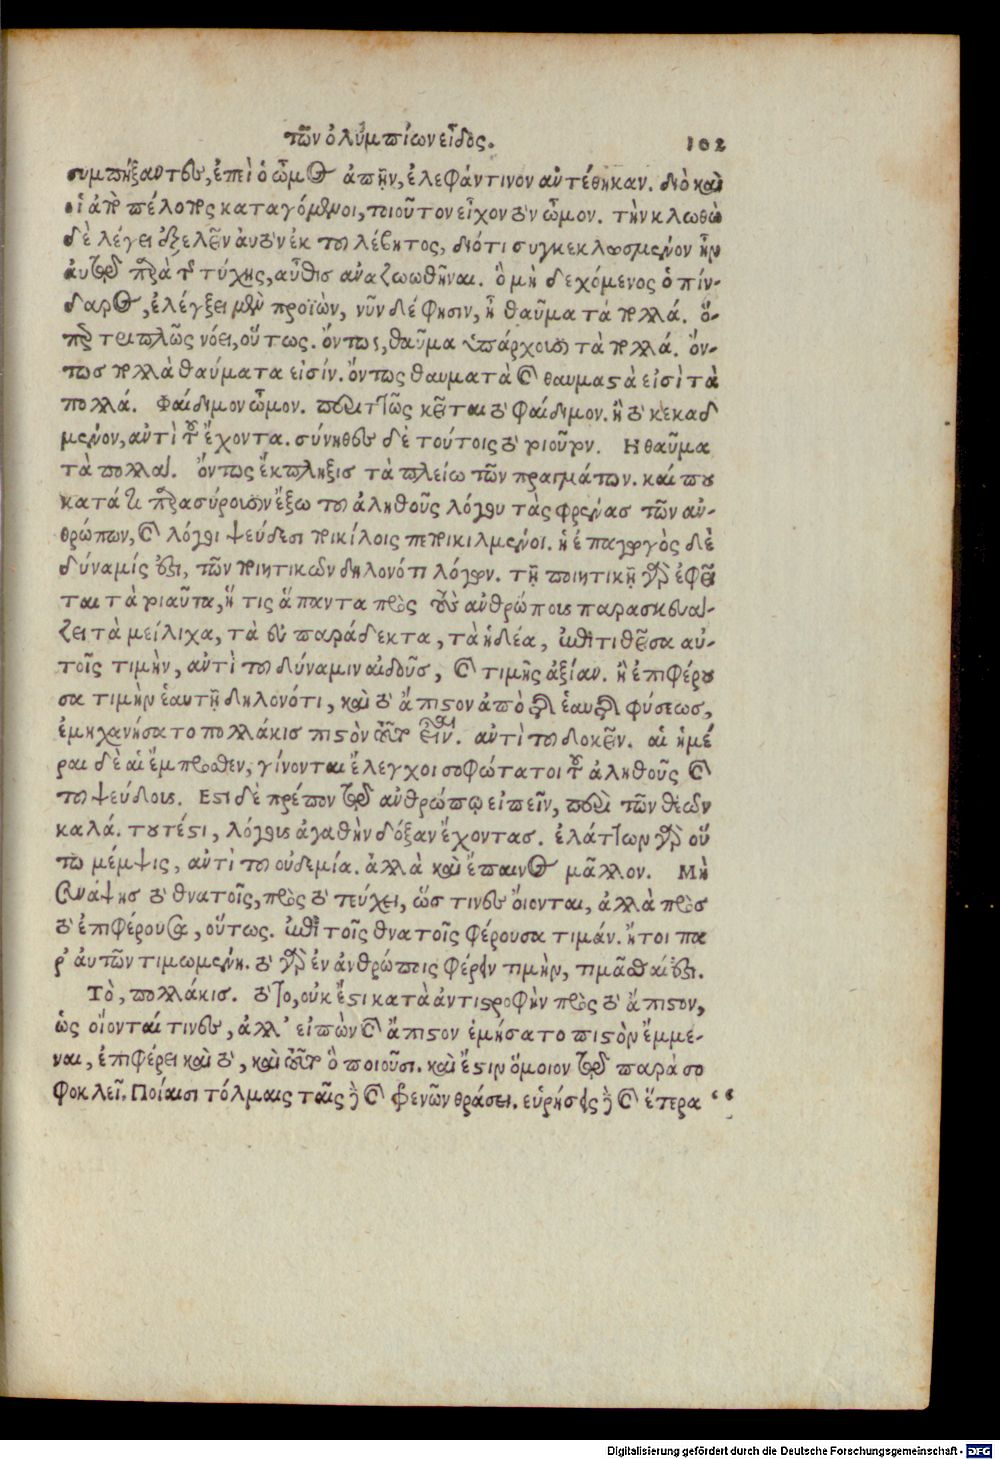 τῶν ὀλυμπίων εἶδος. 102
συμπήξαντες, ἐπεὶ ὁ ὦμος ἀπῆν, ἐλεφάντινον ἀντέθηκαν. διὸ καὶ
οἱ ἀπὸ πέλοπος καταγόμενοι, τοιοῦτον εἶχον τὸν ὦμον. τὴν κλωθὼ
δὲ λέγει ἐξελεῖν αὐτὸν ἐκ τοῦ λέβητος, διότι συγκεκλωσμένον ἦν
αὐτῷ παρὰ τῆς τύχης, αὖθις ἀναζωωθῆναι. ὃ μὴ δεχόμενος ὁ πίν-
δαρος, ἐλέγξει μὲν προϊὼν, νῦν δέ φησιν, ἦ θαῦμα τὰ πολλά. ὅ-
περ τριπλῶς νόει, οὕτως. ὄντως, θαῦμα ὑπάρχουσι τὰ πολλά. ὄν-
τως πολλὰ θαύματα εἰσίν. ὄντως θαυματὰ καὶ θαυμαστὰ εἰσὶ τὰ
πολλά. Φαίδιμον ὦμον. περιττῶς κεῖται τὸ φαίδιμον. ἢ τὸ κεκαδ
μένον, ἀντὶ τοῦ ἔχοντα. σύνηθες δὲ τούτοις τὸ τοιοῦτον. Η θαῦμα
τὰ πολλά. ὄντως ἔκπληξις τὰ πλείω τῶν πραγμάτων. καί που
κατά τι παρασύρουσιν ἔξω τοῦ ἀληθοῦς λόγου τὰς φρένας τῶν ἀν-
θρώπων, καὶ λόγοι ψεύδεσι ποικίλοις πεποικιλμένοι. ἡ ἐπαγωγὸς δὲ
δύναμίς ἐστι, τῶν ποιητικῶν δηλονότι λόγων. τῇ ποιητικῇ γὰρ ἐφεῖ
ται τὰ τοιαῦτα, ἥ τις ἅπαντα πρὸς τοὺς ἀνθρώπους παρασκευά-
ζει τὰ μείλιχα, τὰ εὐπαράδεκτα, τὰ ἡδέα, ἐπιτιθεῖσα αὐ-
τοῖς τιμὴν, ἀντὶ τοῦ δύναμιν αἰδοῦς, καὶ τιμῆς ἀξίαν. ἢ ἐπιφέρου
σα τιμὴν ἑαυτῇ δηλονότι, καὶ τὸ ἄπιστον ἀπὸ τῆς ἑαυτῆς φύσεως,
ἐμηχανήσατο πολλάκις πιστὸν εἶναι. ἀντὶ τοῦ δοκεῖν. αἱ ἡμέ
ραι δὲ αἱ ἔμπροσθεν, γίνονται ἔλεγχοι σοφώτατοι τοῦ ἀληθοῦς καὶ
τοῦ ψεύδους. Εστι δὲ πρέπον τῷ ἀνθρώπῳ εἰπεῖν, περὶ τῶν θεῶν
καλά. τουτέστι, λόγους ἀγαθὴν δόξαν ἔχοντας. ἐλάττων γὰρ οὕ
τω μέμψις, ἀντὶ τοῦ οὐδεμία. ἀλλὰ καὶ ἔπαινος μᾶλλον. Μὴ
συνάψῃς τὸ θνατοῖς, πρὸς τὸ τεύχει, ὥς τινες οἴονται, ἀλλὰ πρὸς
τὸ ἐπιφέρουσα, οὕτως. ἐπὶ τοῖς θνατοῖς φέρουσα τιμάν. ἤτοι πα
ρ' αὐτῶν τιμωμένη. τὸ γὰρ ἐν ἀνθρώποις φέρειν τιμὴν, τιμᾶσθαί ἐστι.
Τὸ, πολλάκις. τὸ το, οὐκ ἔστι κατὰ ἀντιστροφὴν πρὸς τὸ ἄπιστον,
ὡς οἴονταί τινες, ἀλλ' εἰπὼν καὶ ἄπιστον ἐμήσατο πιστὸν ἔμμε-
ναι, ἐπιφέρει καὶ τὸ, ὃ ποιοῦσι. καὶ ἔστιν ὅμοιον τῷ παρὰ σο
φοκλεῖ. Ποίαισι τόλμαις ταῖς καὶ φρενῶν θράσει. εὑρήσεις καὶ ἕτερα
Digitalisierung gefördert durch die Deutsche Forschungsgemeinschaft - DFG